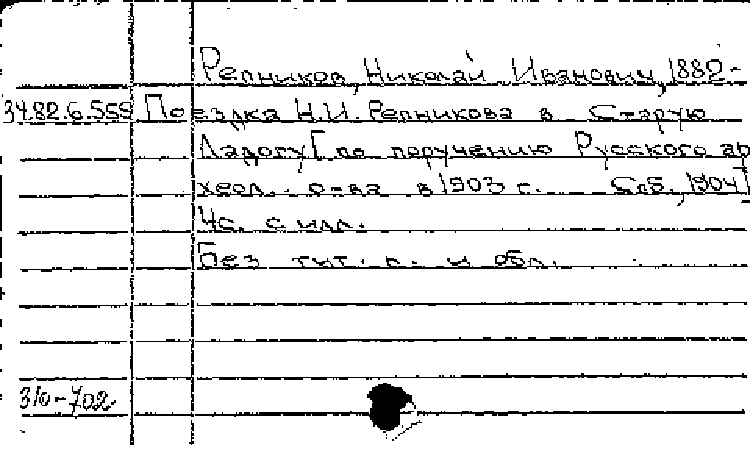 Репников, Николай Иванович, 1882-
34.82.6.555 Поездка Н.И. Репникова в Старую
Ладогу [по поручению Русского ар
хеол. о-ва в 1903 г. Спб, 1904]
4с. с илл.
Без тит. л. и обл.
310-702